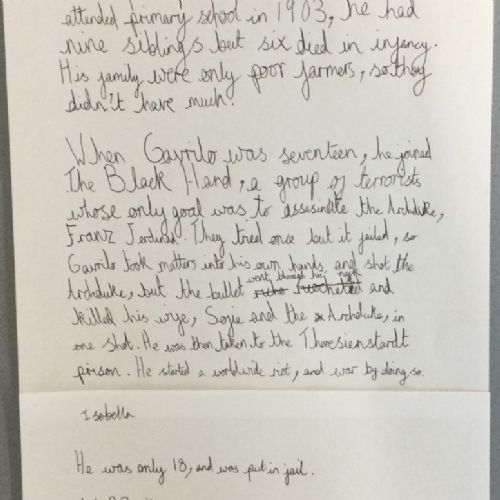 attended primary school in 1903, he had
nine siblings but six died in infancy.
His family were only poor farmers, so they
didn't have much.
When Gavrilo was seventeen, he joined
The Black Hand, a group of terrorists
whose only goal was to assasinate the Archduke,
Franz Ferdinand. They tried once but it failed, so
Gavrilo took matters into his own hands and shot the
went through his neck
Archduke, but the bullet and
killed his wife, Sofie and the Archduke, in
one shot. He was then taken to the Theresienstardt
prison. He started a worldwide riot, and war by doing so.
Isabella
He was only 18, and was put in jail.